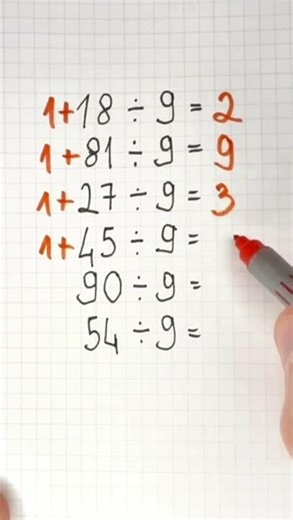 1+18 ÷ 9 = 2
1+81 ÷ 9 = 9
1+27 ÷ 9 = 3
1+45 ÷ 9 =
90 ÷ 9 =
54 ÷ 9 =